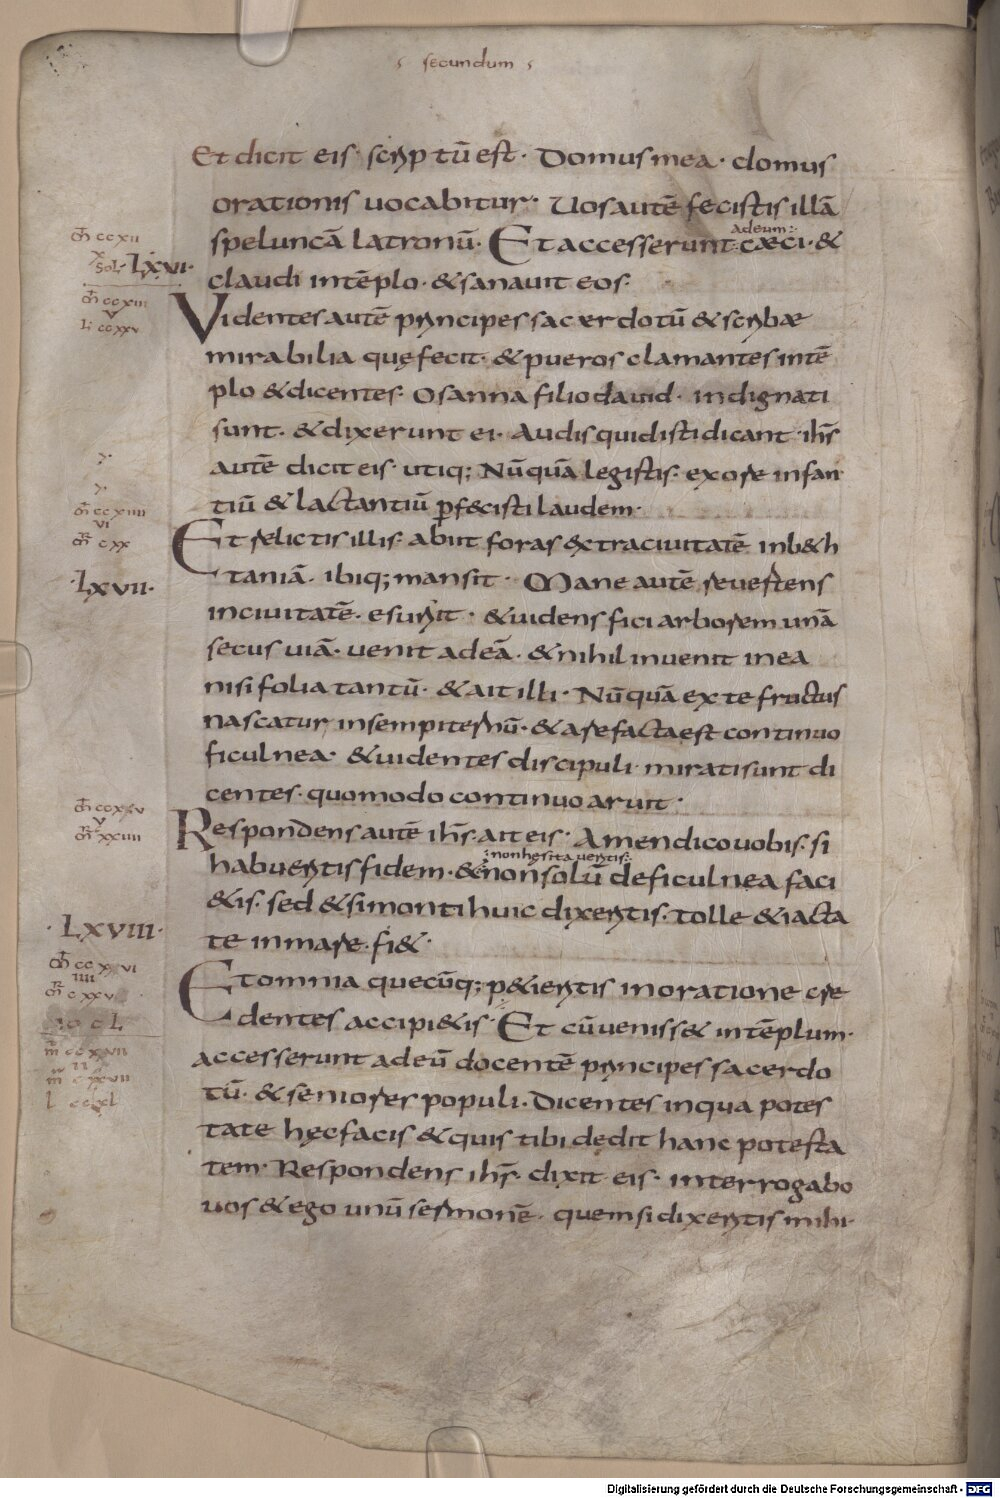 secundum
Et dicit eis· scriptū est· Domus mea· domus
orationis uocabitur· Uos autē fecistis illā
ad eum:
speluncā latronū· Et accesserunt· cæci· &
·LXVI·
claudi in tēplo· & sanauit eos·
Videntes autē principes sacerdotū & scribæ
mirabilia quę fecit· & pueros clamantes in tē
plo & dicentes· Osanna filio dauid· indignati
sunt· & dixerunt ei· Audis quid isti dicant· ihs̄
autē dicit eis· utiq; Nūquā legistis· ex ore infan
tiū & lactantiū ꝑfecisti laudem·
Et relictis illis· abiit foras extra ciuitatē in b&h
·LXVII·
taniā· ibiq; mansit· Mane autē reuertens
in ciuitatē· esuriit· & uidens fici arborem unā
secus uiā· uenit ad eā· & nihil inuenit in ea
nisi folia tantū· & ait illi· Nūquā ex te fructus
nascatur in sempiternū· & arefacta est continuo
ficulnea· & uidentes discipuli mirati sunt di
centes· quomodo continuo aruit·
Respondens autē ihs̄· ait eis· Amen dico uobis· si
:non hęsitaueritis:
habueritis fidem· & non solū de ficulnea faci
&is· sed & si monti huic dixeritis· tolle & iacta
·LXVIII·
te in mare· fi&·
Et omnia quecūq; p&ieritis in oratione cre
dentes accipi&is· Et cūueniss& in tēplum·
accesserunt ad eū docentē principes sacerdo
tū· & seniores populi· Dicentes in qua potes
tate hęc facis & quis tibi dedit hanc potesta
tem· Respondens ihs̄· dixit eis· interrogabo
uos & ego unū sermonē· quem si dixeritis mihi·
Digitalisierung gefördert durch die Deutsche Forschungsgemeinschaft - DFG